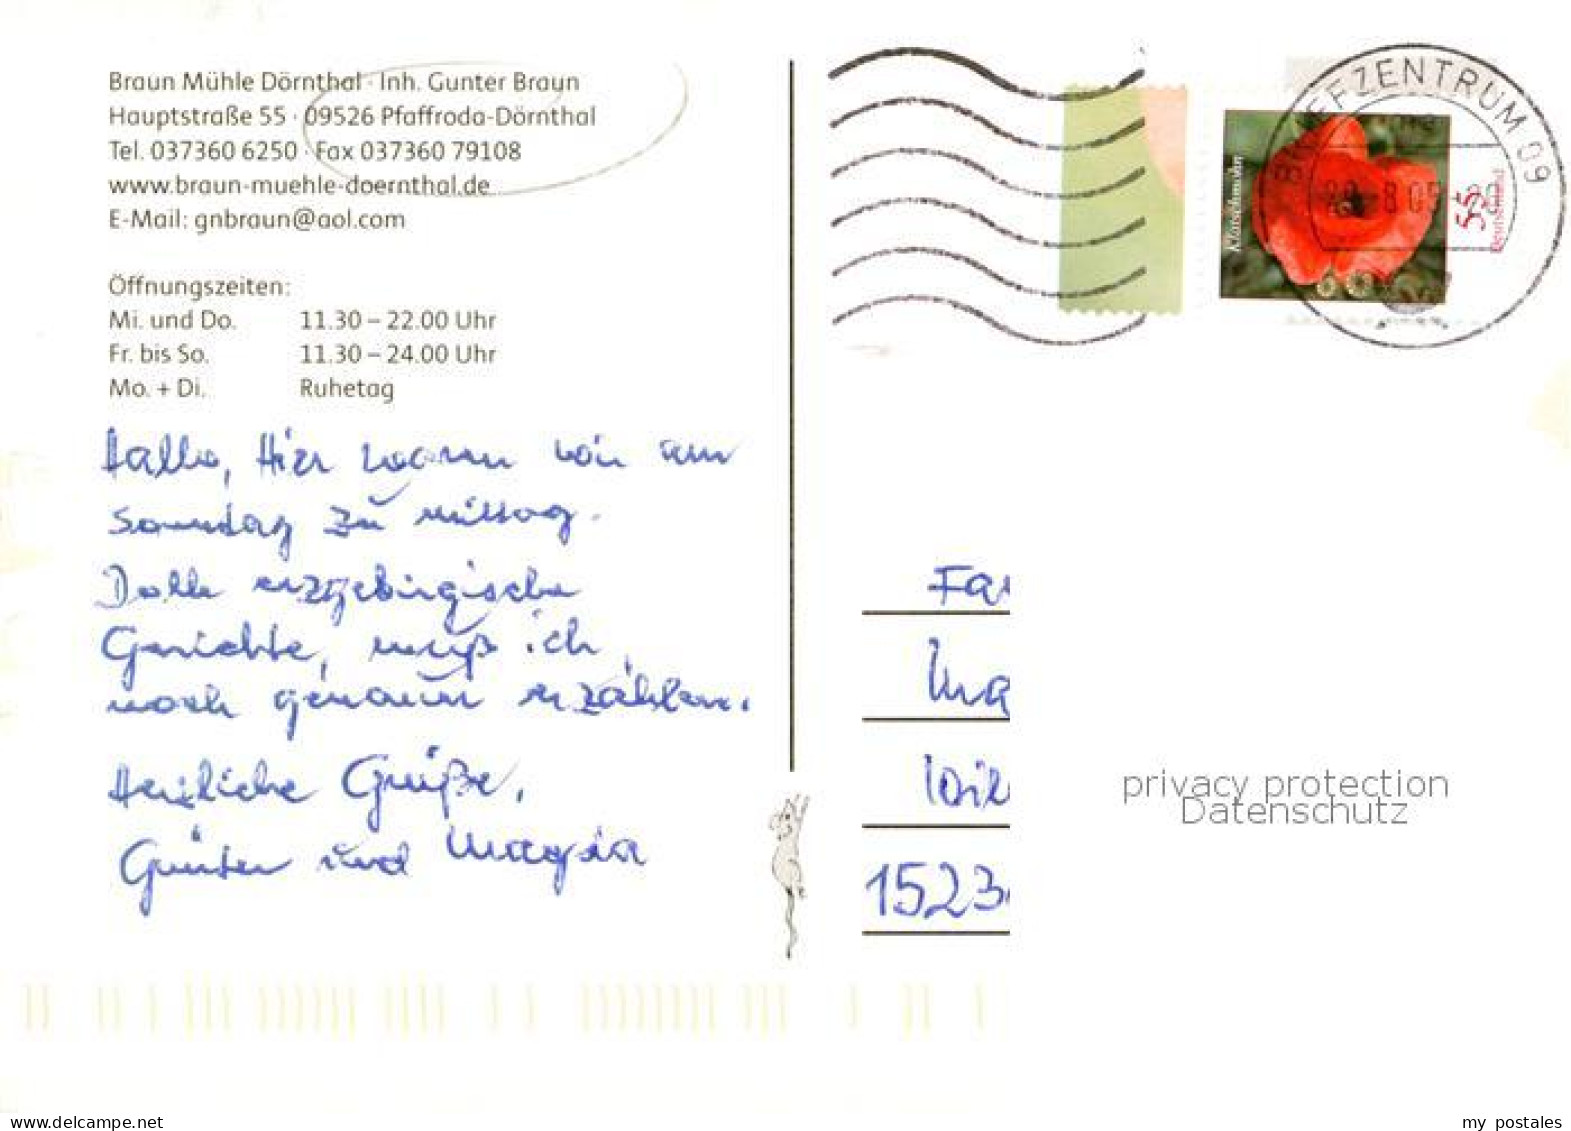 Braun Mühle Dörnthal · Inh. Gunter Braun
Hauptstraße 55 · 09526 Pfaffroda-Dörnthal
Tel. 037360 6250 · Fax 037360 79108
www.braun-muehle-doernthal.de
E-Mail: gnbraun@aol.com
Öffnungszeiten:
Mi. und Do. 11.30 – 22.00 Uhr
Fr. bis So. 11.30 – 24.00 Uhr
Mo. + Di. Ruhetag
Hallo, Hier waren wir am
Sonntag zu mittag.
Dolle erzgebirgische
Gerichte, muß ich
noch genauer erzählen.
Herzliche Grüße,
Günter und
BRIEFZENTRUM 09
Klatschmohn
55
Deutschland
Fa
Ma
1523
privacy protection
Datenschutz
www.delcampe.net
my_postales